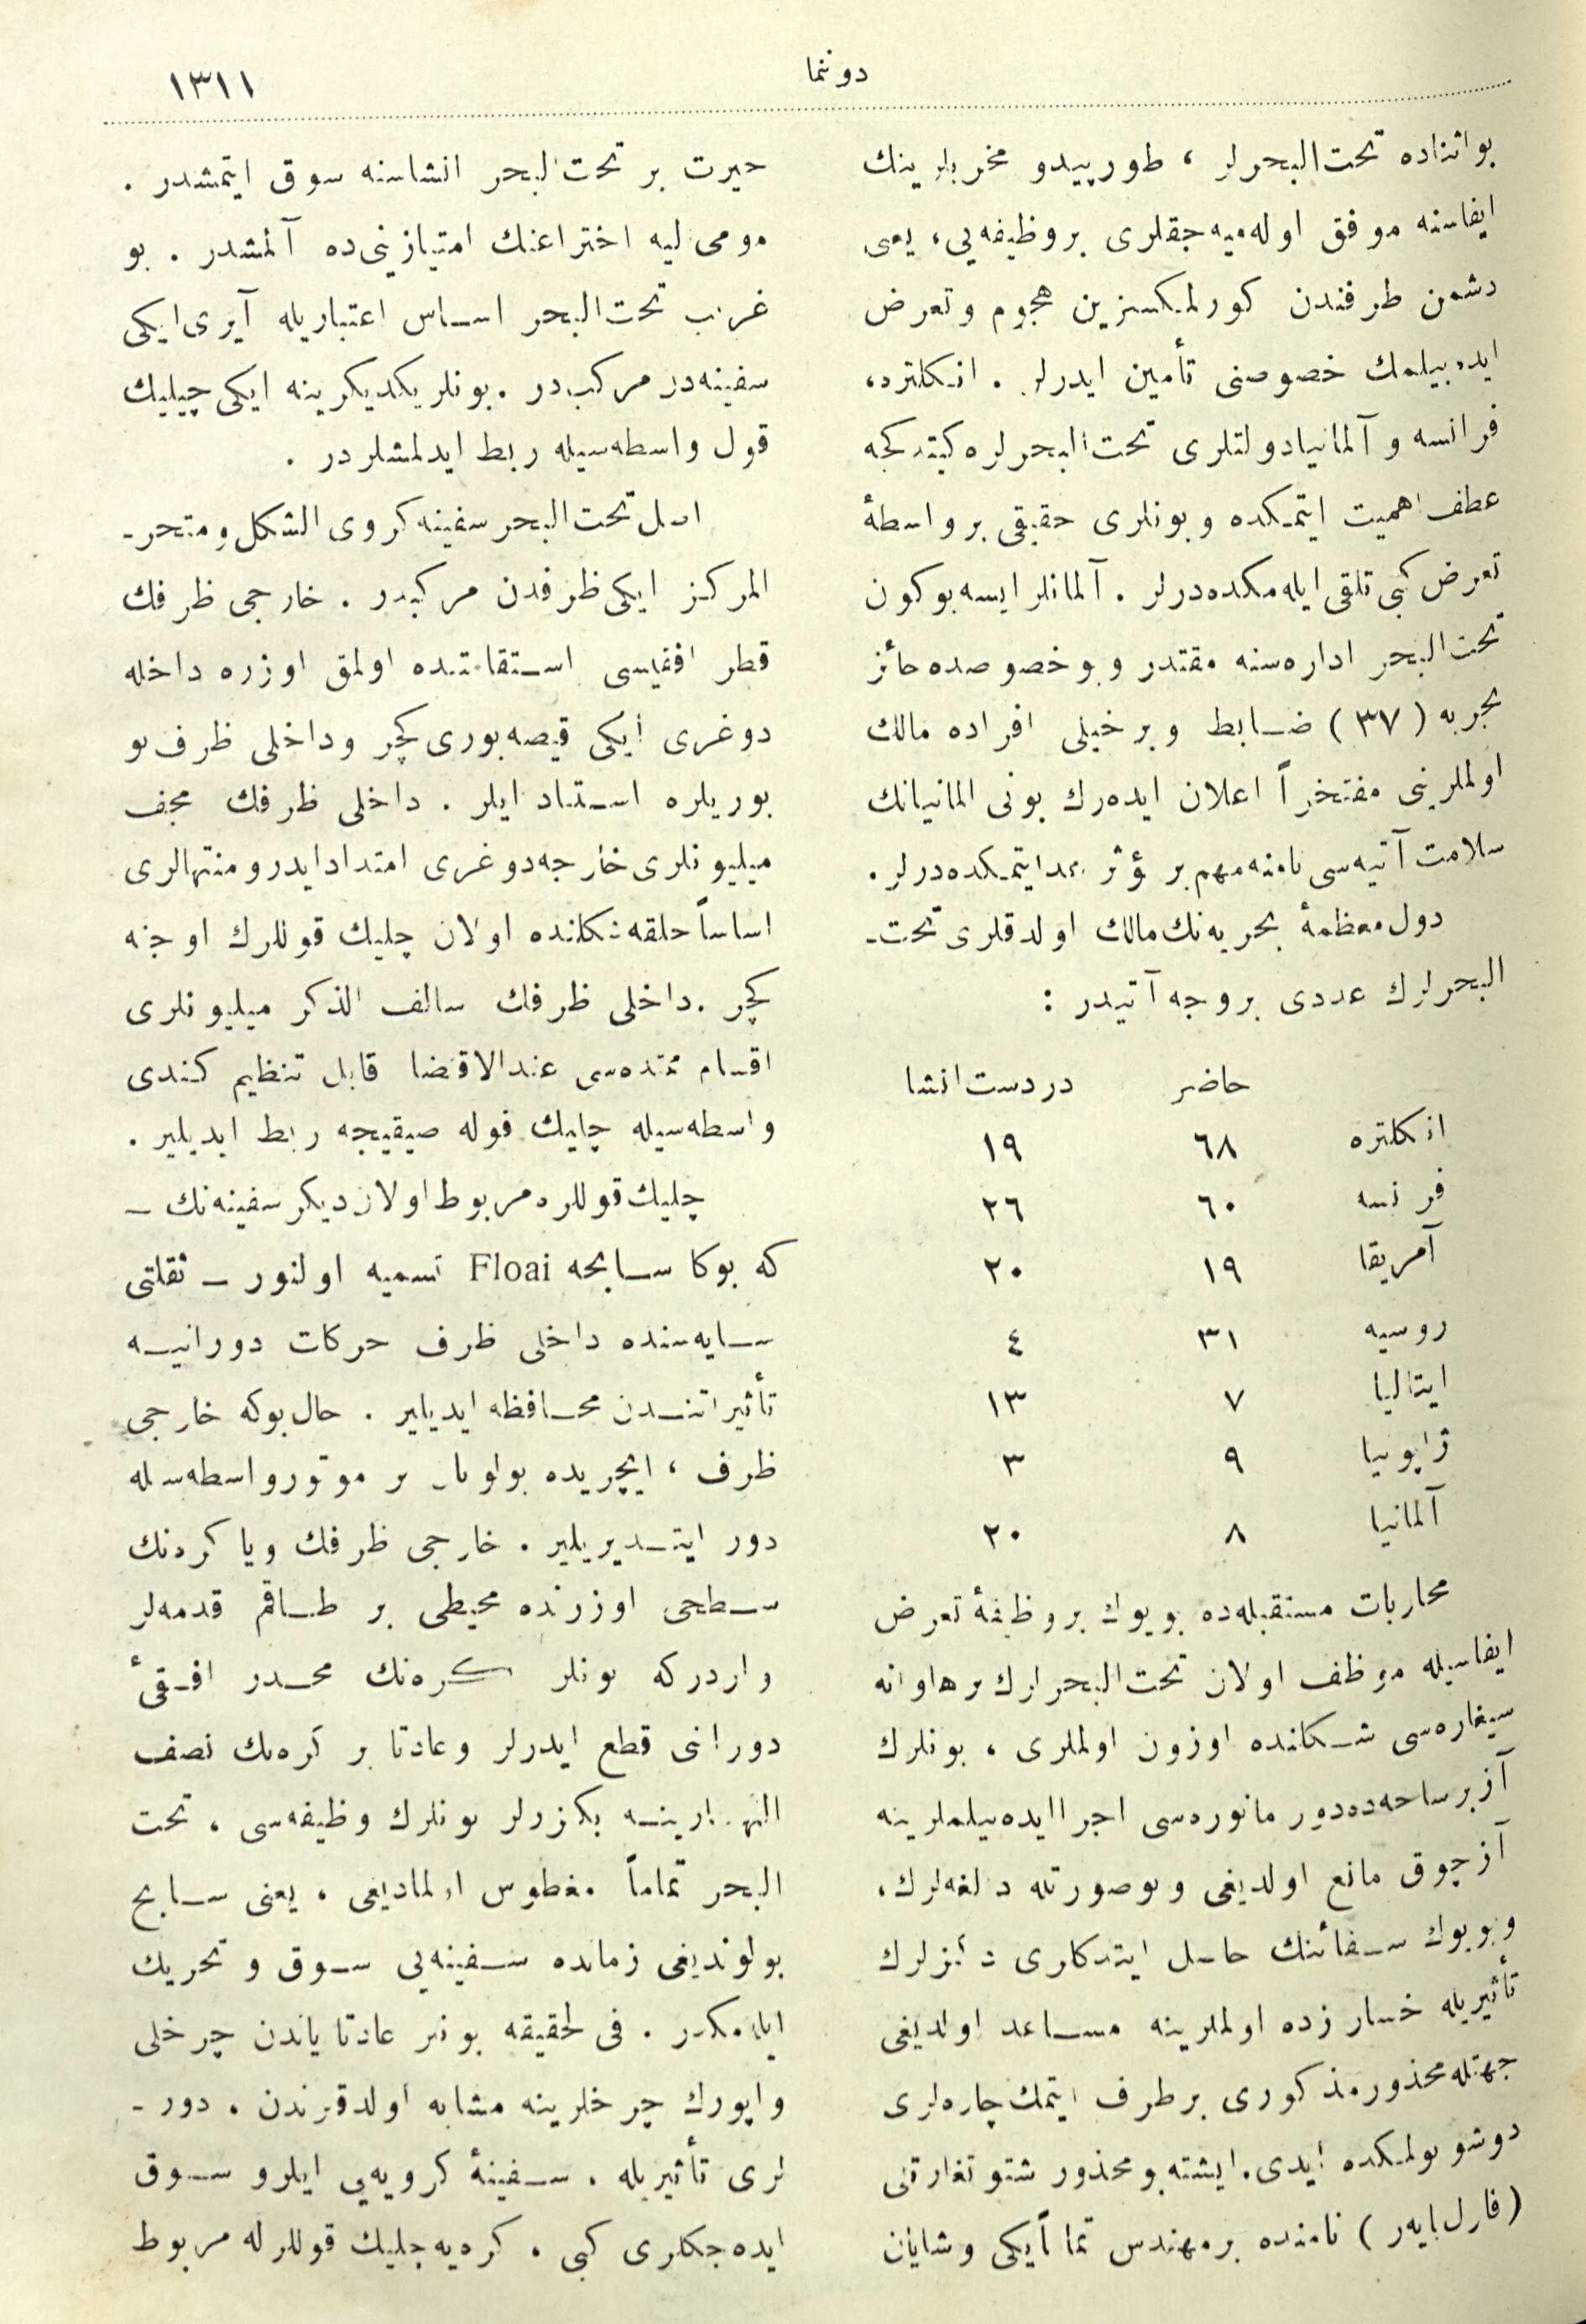 دوننما
١٣١١
بو اثناده تحت البحرلر ، طورپیدو مخربلرینك
ایفاسنه موفق اوله میه جقلری بر وظیفه یی ، یعنی
دشمن طرفندن كورلمكسزین هجوم و تعرض
ایده بیلمك خصوصنی تأمین ایدرلر . انكلتره ،
فرانسه و آلمانیا دولتلری تحت البحرلره كیتدكجه
عطف اهمیت ایتمكده و بونلری حقیقی بر واسطۀ
تعرض كبی تلقی ایله مكده درلر . آلمانلر ایسه بوكون
تحت البحر اداره سنه مقتدر و بو خصوصده حائز
تجربه ( ٣٧ ) ضابط و بر خیلی افراده مالك
اولملرینی مفتخراً اعلان ایده رك بونی المانیانك
سلامت آتیه سی نامنه مهم بر مؤثر عد ایتمكده درلر .
دول معظمۀ بحریه نك مالك اولدقلری تحت ـ
البحرلرك عددی بروجه آتیدر :
حاضر دردست انشا
انكلتره ٦٨ ١٩
فرانسه ٦٠ ٢٦
آمریقا ١٩ ٢٠
روسیه ٣١ ٤
ایتالیا ٧ ١٣
ژاپونیا ٩ ٣
آلمانیا ٨ ٢٠
محاربات مستقبله ده بویوك بر وظیفۀ تعرض
ایفاسیله موظف اولان تحت البحرلرك بر هاوانه
سیغاره سی شكلنده اوزون اولملری ، بونلرك
آز بر ساحه ده دور مانوره سی اجرا ایده بیلملرینه
آز چوق مانع اولدیغی و بو صورتله دالغه لرك ،
و بویوك سفائنك حاصل ایتدكلری دكزلرك
تأثیریله خسارزده اولملرینه مساعد اولدیغی
جهتله محذور مذكوری بر طرف ایتمك چاره لری
دوشونولمكده ایدی . ایشته بو محذور شتوتغارتلی
( قارل بایه ر ) نامنده بر مهندس تماماً یكی و شایان
حیرت بر تحت البحر انشاسنه سوق ایتمشدر .
مومی الیه اختراعنك امتیازینی ده آلمشدر . بو
غریب تحت البحر اساس اعتباریله آیری ایكی
سفینه دن مركبدر . بونلر یكدیكرینه ایكی چیلیك
قول واسطه سیله ربط ایدلمشلردر .
اصل تحت البحر سفینه كروی الشكل و متحد ـ
المركز ایكی ظرفدن مركبدر . خارجی ظرفك
قطر افقیسی استقامتنده اولمق اوزره داخله
دوغری ایكی قیصه بوری كچر و داخلی ظرف بو
بوریلره استناد ایلر . داخلی ظرفك مجوف
میلیونلری خارجه دوغری امتداد ایدر و منتهالری
اساساً حلقه شكلنده اولان چلیك قوللرك اوجنه
كچر . داخلی ظرفك سالف الذكر میلیونلری
اقسام ممتده سی عندالاقتضا قابل تنظیم كندی
واسطه سیله چلیك قوله صیقیجه ربط ایدیلیر .
چلیك قوللره مربوط اولان دیكر سفینه نك ـ
كه بوكا سابحه Floai تسمیه اولنور ـ ثقلتی
سایه سنده داخلی ظرف حركات دورانیه
تأثیراتندن محافظه ایدیلیر . حال بوكه خارجی
ظرف ، ایچریده بولونان بر موتور واسطه سله
دور ایتدیریلیر . خارجی ظرفك ویا كره نك
سطحی اوزرنده محیطی بر طاقم قدمه لر
واردر كه بونلر كره نك محور افقیٔ
دورانی قطع ایدرلر و عادتا بر كره نك نصف
النهارلرینه بكزرلر بونلرك وظیفه سی ، تحت
البحر تماماً مغطوس اولمادیغی ، یعنی سابح
بولوندیغی زمانده سفینه یی سوق و تحریك
ایله مكدر . فی الحقیقه بونلر عادتا یاندن چرخلی
واپورك چرخلرینه مشابه اولدقلرندن ، دور ـ
لری تأثیریله ، سفینۀ كرویه یی ایلرو سوق
ایده جكلری كبی ، كره یه چلیك قوللرله مربوط